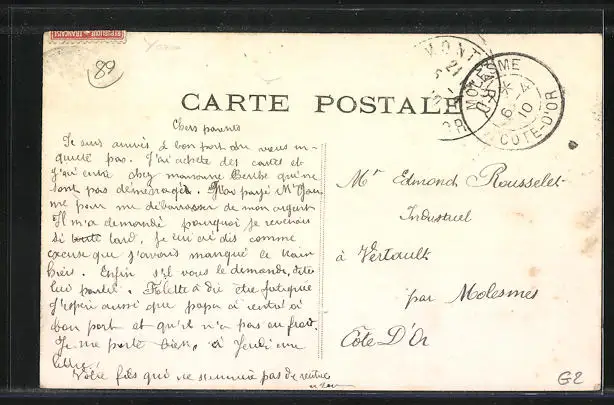 REPUBLIQUE FRANÇAISE
89
CARTE POSTALE
MONT
21
MOLESME
6 4
10
CÔTE-D'OR
Chers parents
Je suis arrivés à bon port
quiete pas. J'ai acheté des cartes et
chez madame Berthe qui ne
sont pas déménagés. payé Mr
me pour me débarrasser de mon argent
Il m'a demandé pourquoi je revenais
si toute tard. Je lui ai dis comme
excuse que j'avais manqué le train
hier. Enfin s'il vous le demande, dite
lui pareil. a dû être fatiguée
J'espère aussi que papa ai rentré à
bon port et qu'il n'a pas eu froid.
Je me porte bien, à Jeudi une
lettre.
Votre fils qui ne s'ennuie pas de
Mr Edmond Rousselet
Industriel
à Vertault
par Molesmes
Côte D'Or
G2